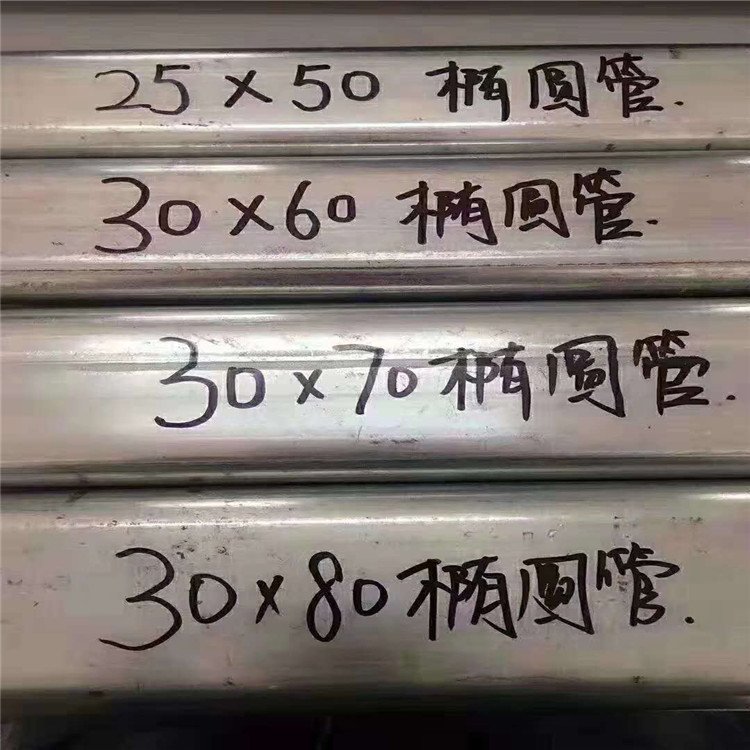 25×50 椭圆管.
30×60 椭圆管.
30×70 椭圆管.
30×80 椭圆管.